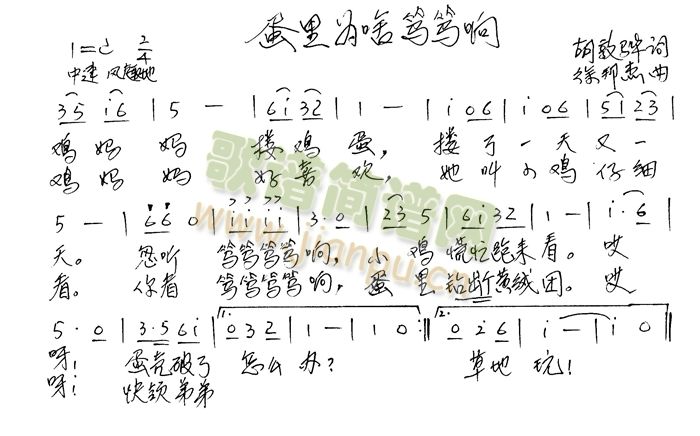 蛋里为啥笃笃响
1=C 2/4
中速 风趣地
胡敦骅词
徐邦杰曲
3 5 i 6 | 5 — | 6 i 3 2 | 1 — | i 0 6 | i 0 6 | 5 1 2 3 |
鸡 妈 妈 搂 鸡 蛋, 搂 了 一 天 又 一
鸡 妈 妈 好 喜 欢, 她 叫 小 鸡 仔 细
5 — | 6 6 0 | i i i i | 3· 0 | 2 3 5 | 6 i 3 2 | 1 — | i· 6 |
天。 忽听 笃笃笃笃响, 小 鸡 慌忙跑来 看。 哎
看。 你看 笃笃笃笃响, 蛋 里 钻出黄绒团。 哎
5· 0 | 3·5 6 i | 1. 0 3 2 | 1 — | 1 0 :| 2. 0 2 6 | i — | i 0
呀! 蛋壳破了 怎么 办? 草地 玩!
呀! 快领弟弟
歌谱简谱网
www.jianpu.cn